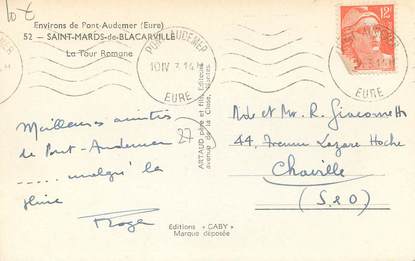 Environs de Pont-Audemer (Eure)
52 - SAINT-MARDS-de-BLACARVILLE
La Tour Romane
PONT-AUDEMER
EURE
12F
EURE
Meilleures amitiés
de Pont-Audemer
..... malgré la
pluie
Roger
27
ARTAUD père et fils, Editeurs
Nantes
Mde et Mr. R. Giacometti
44, Avenue Lazare Hoche
Chaville
(S&O)
Editions « GABY »
Marque déposée